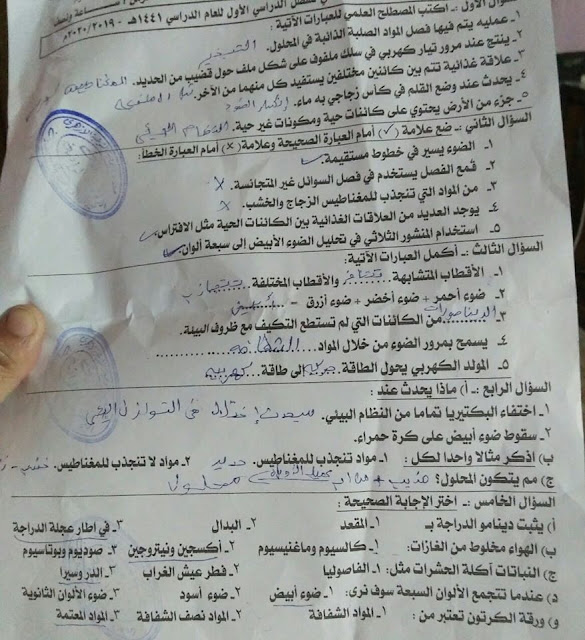 السؤال الأول :ـ اكتب المصطلح العلمي للعبارات الآتية :
الدراسي الأول للعام الدراسي ١٤٤١هـ - ٢٠١٩/ ٢٠٢٠م
١ـ عمليه يتم فيها فصل المواد الصلبة الذائبة في المحلول. التبخير
٢ـ ينتج عند مرور تيار كهربي في سلك ملفوف على شكل ملف حول قضيب من الحديد.
٣ـ علاقة غذائية تتم بين كائنين مختلفين يستفيد كل منهما من الآخر.
٤ـ يحدث عند وضع القلم في كأس زجاجي به ماء. انكسار الضوء
٥ـ جزء من الأرض يحتوي على كائنات حية ومكونات غير حية. النظام البيئي
السؤال الثاني :ـ ضع علامة (✓) أمام العبارة الصحيحة وعلامة (×) أمام العبارة الخطأ:
١ـ الضوء يسير في خطوط مستقيمة. ✓
٢ـ قمع الفصل يستخدم في فصل السوائل غير المتجانسة. ×
٣ـ من المواد التي تنجذب للمغناطيس الزجاج والخشب. ×
٤ـ يوجد العديد من العلاقات الغذائية بين الكائنات الحية مثل الافتراس ✓
٥ـ استخدام المنشور الثلاثي في تحليل الضوء الأبيض إلى سبعة ألوان. ✓
السؤال الثالث :ـ أكمل العبارات الآتية:
١ـ الأقطاب المتشابهة تتنافر والأقطاب المختلفة تتجاذب
٢ـ ضوء أحمر + ضوء أخضر + ضوء أزرق = أبيض
٣ـ الديناصورات من الكائنات التي لم تستطع التكيف مع ظروف البيئة.
٤ـ يسمح بمرور الضوء من خلال المواد الشفافة
٥ـ المولد الكهربي يحول الطاقة حركية إلى طاقة كهربية
السؤال الرابع :ـ أ) ماذا يحدث عند :
١ـ اختفاء البكتيريا تماما من النظام البيئي. سيحدث اختلال في التوازن البيئي
٢ـ سقوط ضوء أبيض على كرة حمراء.
ب) اذكر مثالا واحدا لكل : ١ـ مواد تنجذب للمغناطيس. حديد ٢ـ مواد لا تنجذب للمغناطيس. خشب
ج) مم يتكون المحلول؟ مذيب + مذاب محلول
السؤال الخامس :ـ اختر الإجابة الصحيحة :
أ) يثبت دينامو الدراجة بـ ١ـ المقعد ٢ـ البدال ٣ـ في اطار عجلة الدراجة
ب) الهواء مخلوط من الغازات: ١ـ كالسيوم وماغنيسيوم ٢ـ أكسجين ونيتروجين ٣ـ صوديوم وبوتاسيوم
ج) النباتات آكلة الحشرات مثل: ١ـ الفاصوليا ٢ـ فطر عيش الغراب ٣ـ الدروسيرا
د) عندما تتجمع الألوان السبعة سوف نرى: ١ـ ضوء أبيض ٢ـ ضوء أسود ٣ـ ضوء الألوان الثانوية
و) ورقة الكرتون تعتبر من : ١ـ المواد الشفافة ٢ـ المواد نصف الشفافة ٣ـ المواد المعتمة